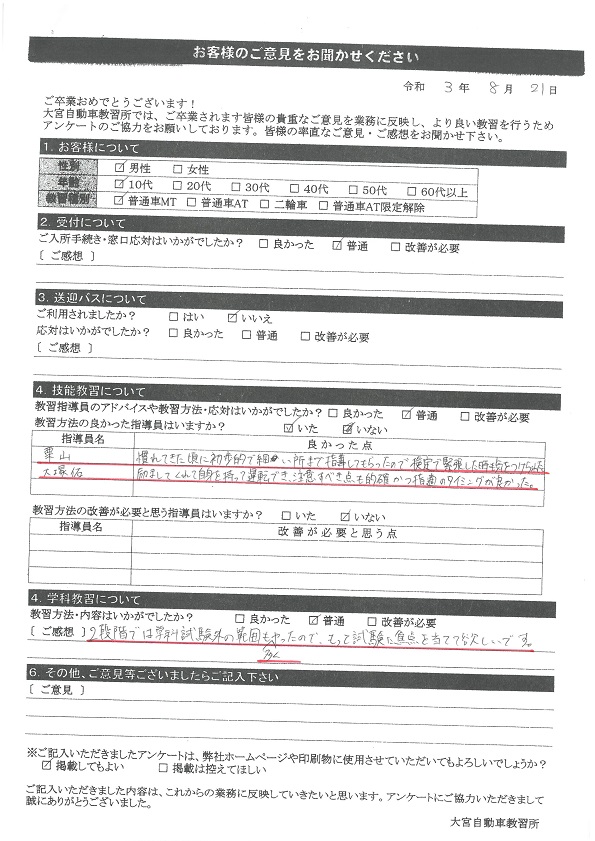 お客様のご意見をお聞かせください
令和 3 年 8 月 21 日
ご卒業おめでとうございます！
大宮自動車教習所では、ご卒業されます皆様の貴重なご意見を業務に反映し、より良い教習を行うため
アンケートのご協力をお願いしております。皆様の率直なご意見・ご感想をお聞かせ下さい。
1. お客様について
性別 ☑ 男性 □ 女性
年齢 ☑ 10代 □ 20代 □ 30代 □ 40代 □ 50代 □ 60代以上
教習種別 ☑ 普通車MT □ 普通車AT □ 二輪車 □ 普通車AT限定解除
2. 受付について
ご入所手続き・窓口応対はいかがでしたか？ □ 良かった ☑ 普通 □ 改善が必要
〔 ご感想 〕
3. 送迎バスについて
ご利用されましたか？ □ はい ☑ いいえ
応対はいかがでしたか？ □ 良かった □ 普通 □ 改善が必要
〔 ご感想 〕
4. 技能教習について
教習指導員のアドバイスや教習方法・応対はいかがでしたか？ □ 良かった ☑ 普通 □ 改善が必要
教習方法の良かった指導員はいますか？ ☑ いた ☑ いない
指導員名 良かった点
栗山 慣れてきた頃に初歩的で細い所まで指導してもらったので検定で緊張した時も気をつけられた
大塚佑 励ましてくれて自身を持って運転でき、注意すべき点も的確かつ指導のタイミングが良かった。
教習方法の改善が必要と思う指導員はいますか？ □ いた ☑ いない
指導員名 改善が必要と思う点
4. 学科教習について
教習方法・内容はいかがでしたか？ □ 良かった ☑ 普通 □ 改善が必要
〔 ご感想 〕 2段階では学科試験外の範囲もやったので、もって試験に焦点を当てて欲しいです。
多く
6. その他、ご意見等ございましたらご記入下さい
〔 ご意見 〕
※ご記入いただきましたアンケートは、弊社ホームページや印刷物に使用させていただいてもよろしいでしょうか？
☑ 掲載してもよい □ 掲載は控えてほしい
ご記入いただきました内容は、これからの業務に反映していきたいと思います。アンケートにご協力いただきまして
誠にありがとうございました。
大宮自動車教習所